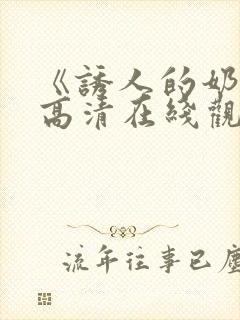 《誘人的奶
高清在綫觀
流年往事已塵